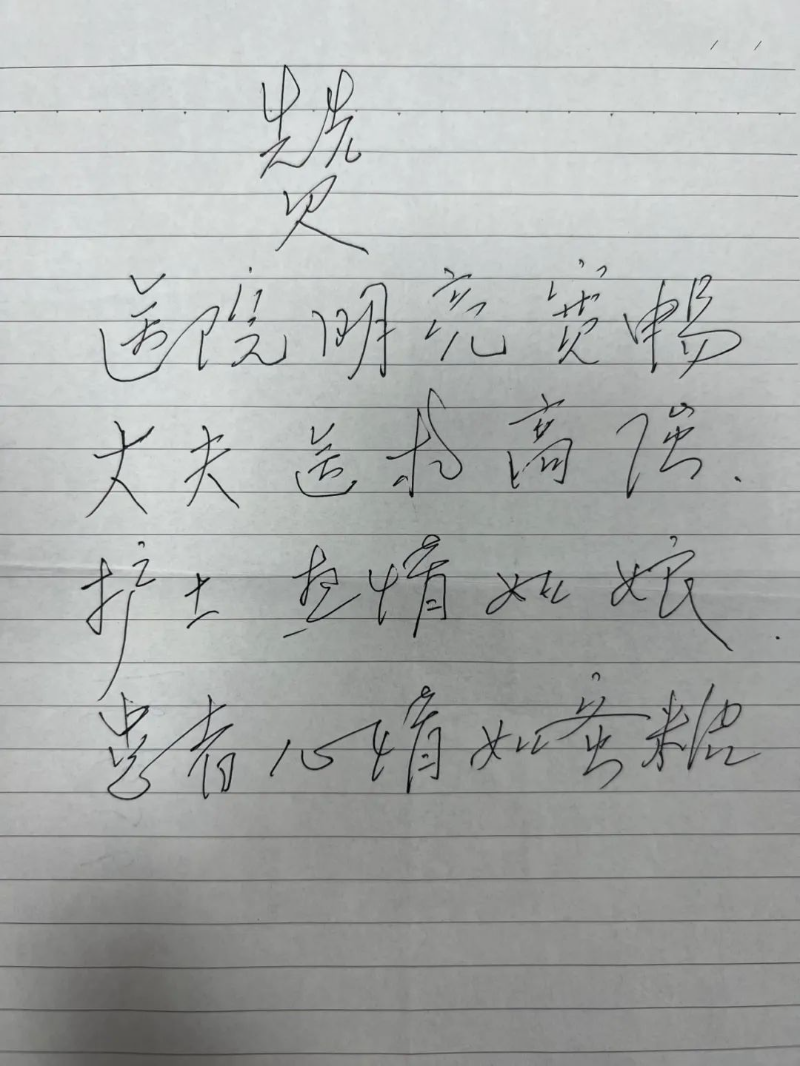 赞
医院明亮宽畅
大夫医技高强.
护士热情如娘.
患者心情如蜜糖